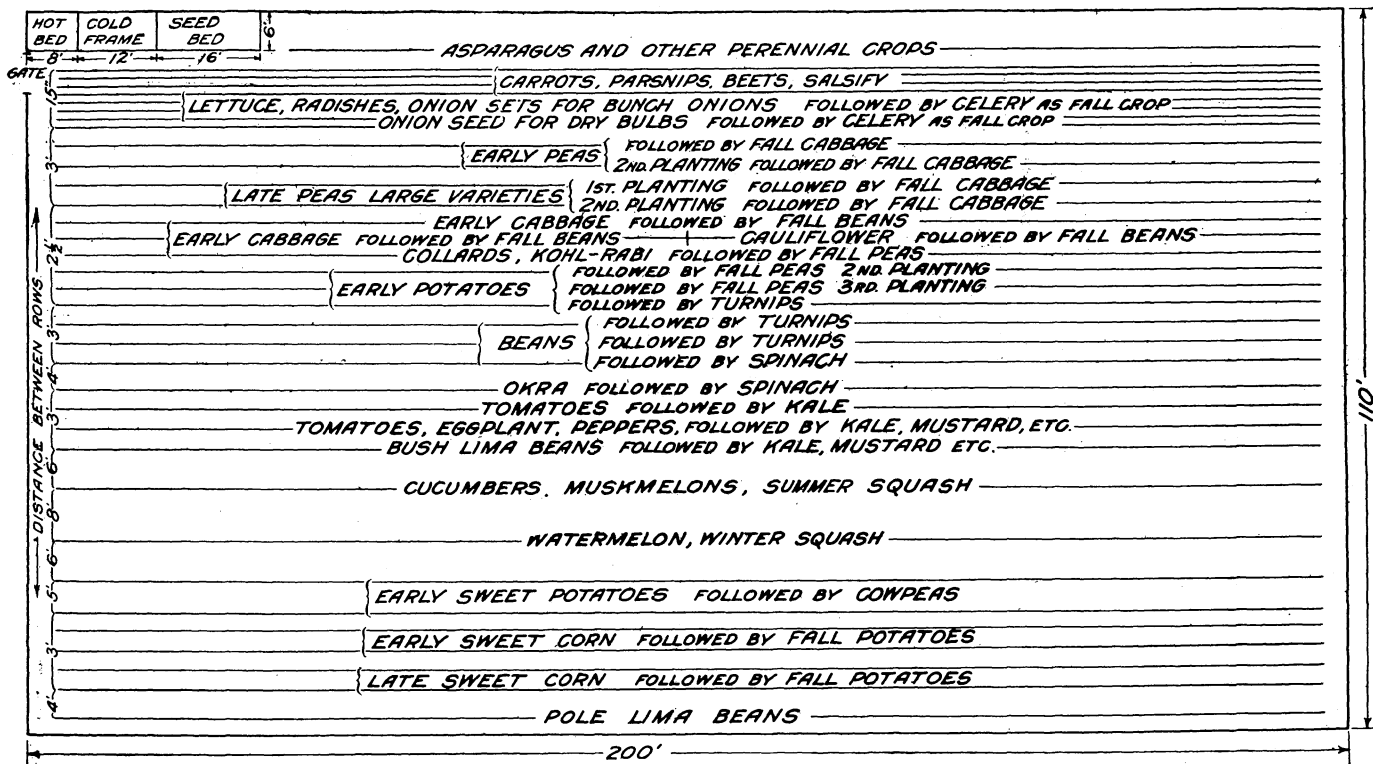 HOT BED
COLD FRAME
SEED BED
6'
8'
12'
16'
ASPARAGUS AND OTHER PERENNIAL CROPS
GATE
CARROTS, PARSNIPS, BEETS, SALSIFY
15"
LETTUCE, RADISHES, ONION SETS FOR BUNCH ONIONS FOLLOWED BY CELERY AS FALL CROP
ONION SEED FOR DRY BULBS FOLLOWED BY CELERY AS FALL CROP
3'
EARLY PEAS
FOLLOWED BY FALL CABBAGE
2ND. PLANTING FOLLOWED BY FALL CABBAGE
LATE PEAS LARGE VARIETIES
1ST. PLANTING FOLLOWED BY FALL CABBAGE
2ND. PLANTING FOLLOWED BY FALL CABBAGE
EARLY CABBAGE FOLLOWED BY FALL BEANS
2½'
EARLY CABBAGE FOLLOWED BY FALL BEANS
CAULIFLOWER FOLLOWED BY FALL BEANS
COLLARDS, KOHL-RABI FOLLOWED BY FALL PEAS
EARLY POTATOES
FOLLOWED BY FALL PEAS 2ND. PLANTING
FOLLOWED BY FALL PEAS 3RD. PLANTING
FOLLOWED BY TURNIPS
3'
BEANS
FOLLOWED BY TURNIPS
FOLLOWED BY TURNIPS
FOLLOWED BY SPINACH
4'
OKRA FOLLOWED BY SPINACH
3'
TOMATOES FOLLOWED BY KALE
TOMATOES, EGGPLANT, PEPPERS, FOLLOWED BY KALE, MUSTARD, ETC.
BUSH LIMA BEANS FOLLOWED BY KALE, MUSTARD ETC.
6'
CUCUMBERS, MUSKMELONS, SUMMER SQUASH
8'
WATERMELON, WINTER SQUASH
6'
5'
EARLY SWEET POTATOES FOLLOWED BY COWPEAS
EARLY SWEET CORN FOLLOWED BY FALL POTATOES
3'
LATE SWEET CORN FOLLOWED BY FALL POTATOES
4'
POLE LIMA BEANS
DISTANCE BETWEEN ROWS
110'
200'